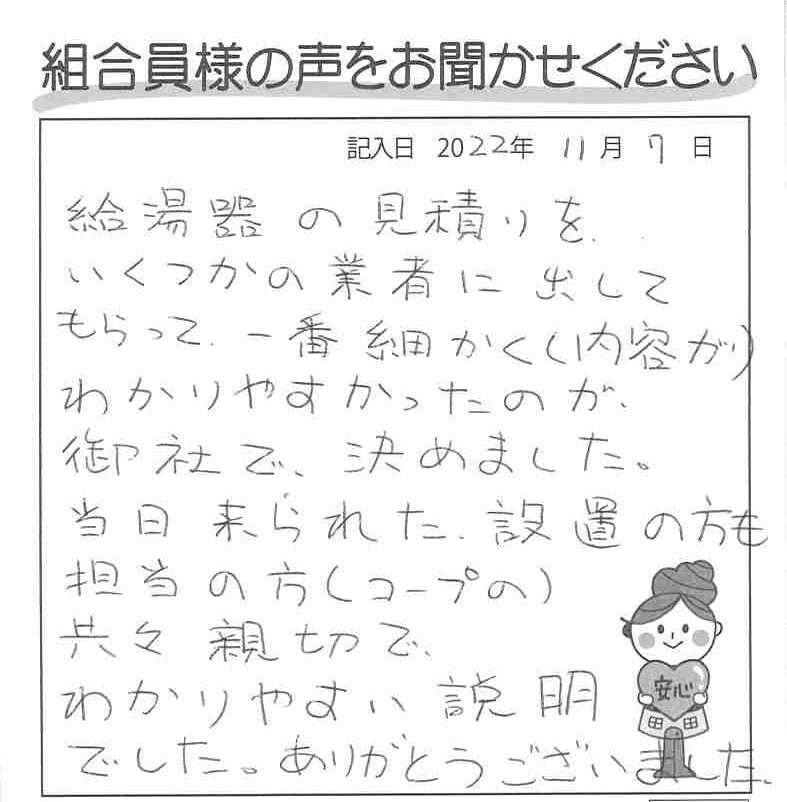 組合員様の声をお聞かせください
記入日 2022年 11月 7日
給湯器の見積りを、
いくつかの業者に出して
もらって、一番細かく(内容が)
わかりやすかったのが、
御社で、決めました。
当日来られた、設置の方も
担当の方(コープの)
共々親切で、
わかりやすい説明
でした。ありがとうございました。
安心